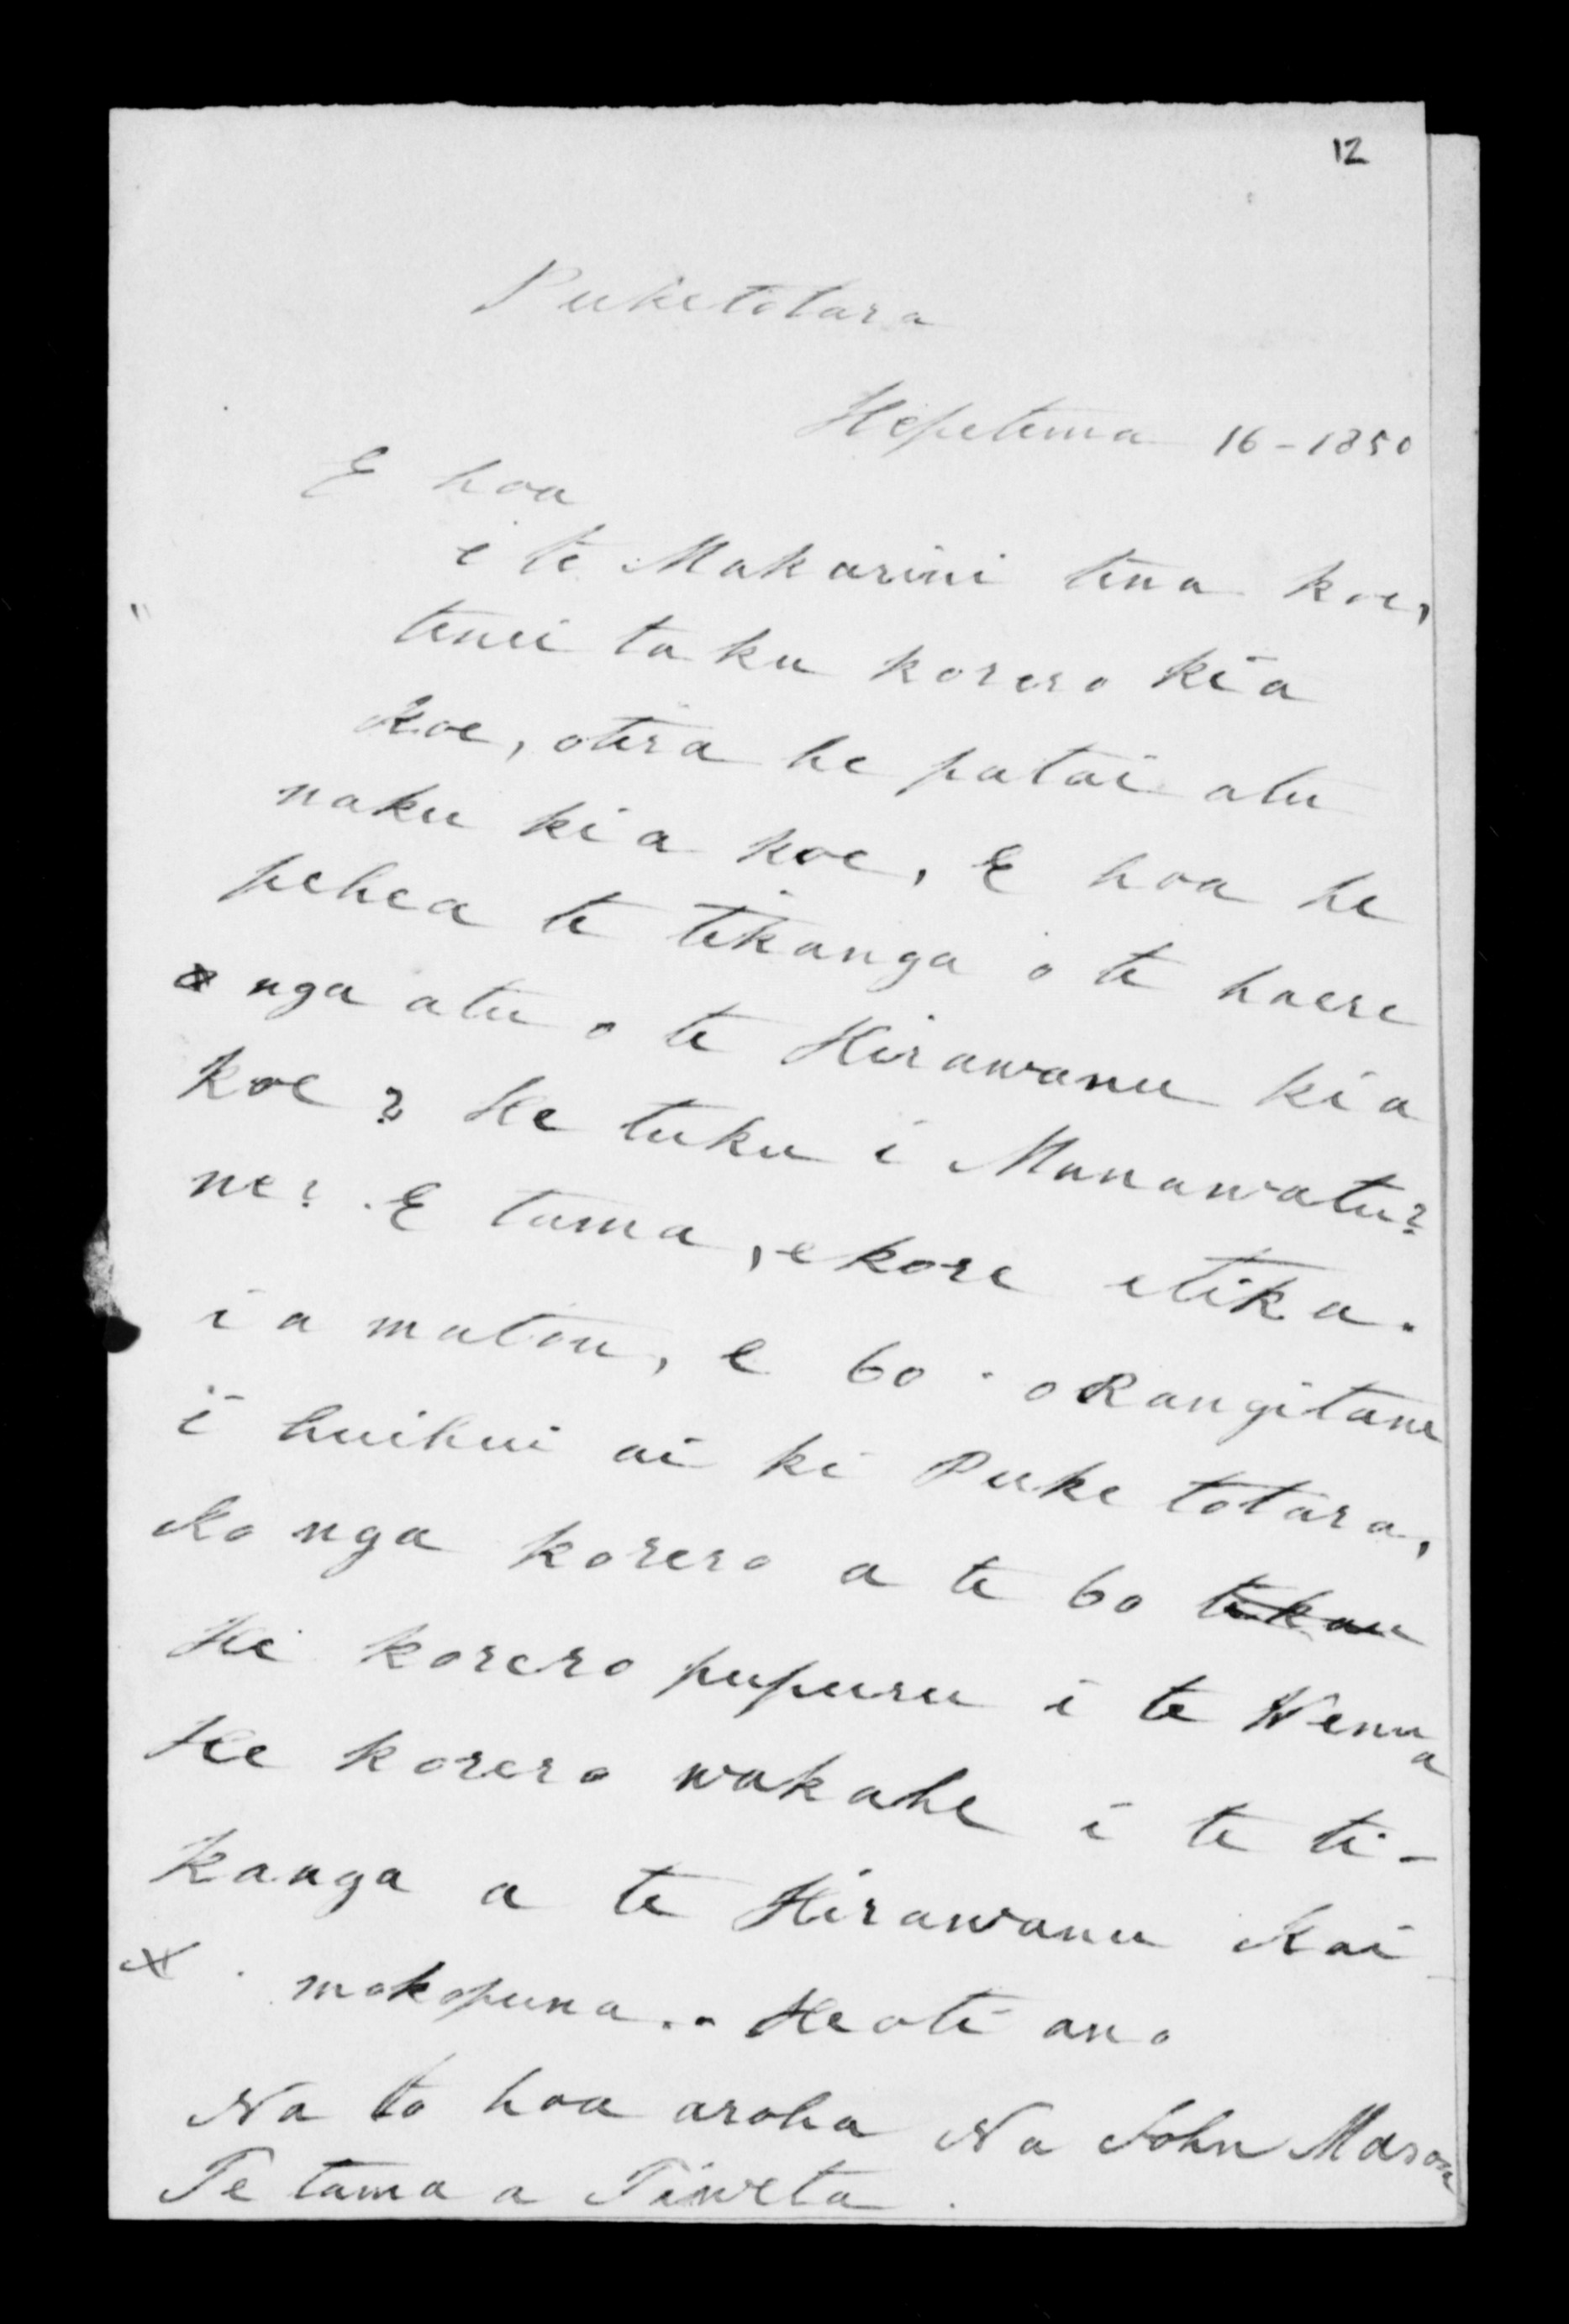 12
Puketotara
Hepetema 16-1850
E hoa
e te Makarini tena koe,
tenei taku korero kia
koe, otira he patai atu
naku kia koe, E hoa he
pehea te tikanga o te haere
nga atu o te Hirawanu kia
koe? He tuku i Manawatu?
ne? E tama, ekore etika.
i a matou, e 60 o Rangitane
i huihui ai ki Puke totara,
ko nga korero a te 60 tekau
He korero pupuru i te Wenua
He korero wakahe i te ti-
kanga a te Hirawanu Kai
x mokopuna.. Heoti ano
Na to hoa aroha Na John Mason
Te tama a Tiweta.